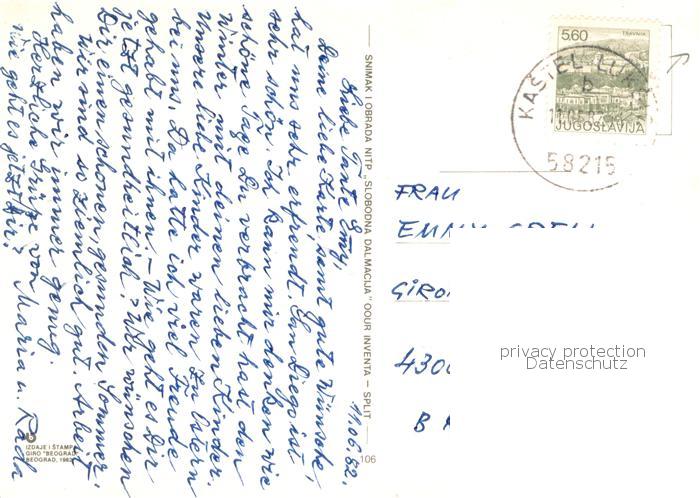 11.06.82.
Liebe Tante Emy,
Deine liebe Karte, samt gute Wünsche,
hat uns sehr erfreudt. Ehn Diego ist
sehr schön. Ich kann mir denken wie
schöne Tage Du verbracht hast den
Winter mit deinen lieben Kinder.
Unsere liebe Kinder waren zu Ostern
bei uns. Da hatte ich viel Freude
gehabt mit ihnen. – Wie geht es Dir
jetzt gesundheitlich? Wir wünschen
Dir einen schönen, gesunden Sommer.
Wir sind so ziemlich gut. Arbeit
haben wir immer genug.
Herzliche Grüße von Maria u.
wie geht es jetzt Dir?
SNIMAK I OBRADA NITP „SLOBODNA DALMACIJA" OOUR INVENTA — SPLIT
106
IZDAJE I ŠTAMPA
GIRO "BEOGRAD"
BEOGRAD, 1982
5.60
TRAVNIK
JUGOSLAVIJA
KAŠTEL
b
58215
FRAU
EMMY
GIRO
430
B
privacy protection
Datenschutz